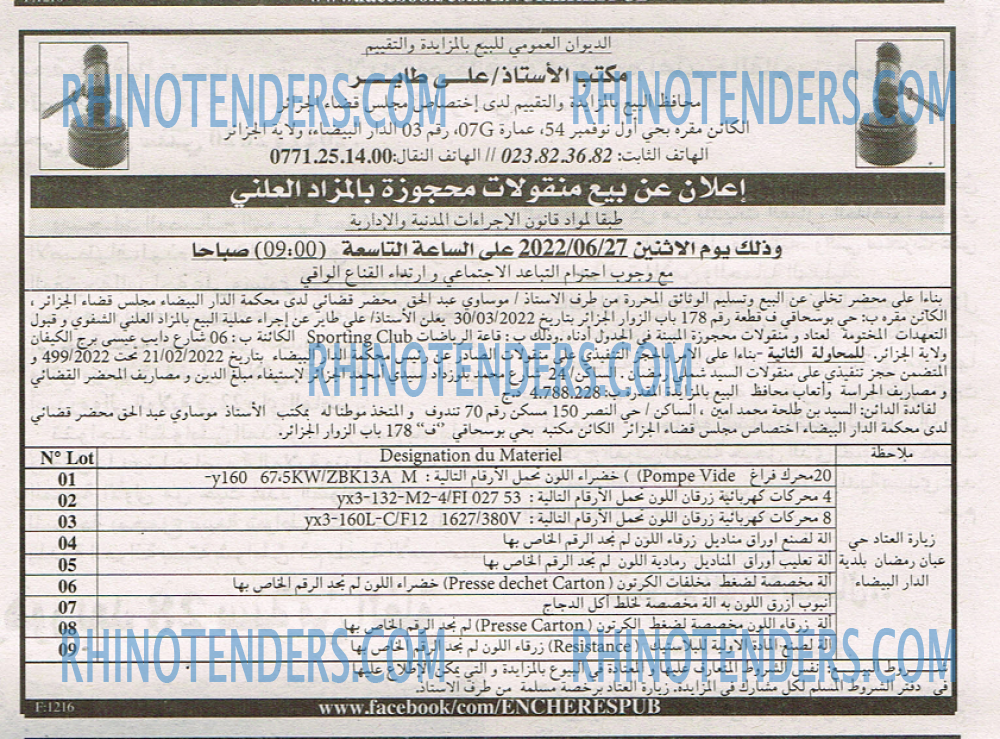 الديوان العمومي للبيع بالمزايدة والتقييم
مكتب الأستاذ/علي طاير
محافظ البيع بالمزايدة والتقييم لدى إختصاص مجلس قضاء الجزائر
الكائن مقره بحي أول نوفمبر 54، عمارة 07G، رقم 03 الدار البيضاء، ولاية الجزائر
الهاتف الثابت: 023.82.36.82 // الهاتف النقال:0771.25.14.00
إعلان عن بيع منقولات محجوزة بالمزاد العلني
طبقا لمواد قانون الإجراءات المدنية والإدارية
وذلك يوم الاثنين 2022/06/27 على الساعة التاسعة (09:00) صباحا
مع وجوب احترام التباعد الاجتماعي و ارتداء القناع الواقي
بناءا على محضر تخلي عن البيع وتسليم الوثائق المحررة من طرف الاستاذ / موساوي عبد الحق محضر قضائي لدى محكمة الدار البيضاء مجلس قضاء الجزائر ،
الكائن مقره ب: حي بوسحاقي ف قطعة رقم 178 باب الزوار الجزائر بتاريخ 30/03/2022 يعلن الأستاذ/ علي طاير عن إجراء عملية البيع بالمزاد العلني الشفوي و قبول
التعهدات المختومة لعتاد و منقولات محجوزة المبينة في الجدول أدناه وذلك ب : قاعة الرياضات Sporting Club الكائنة ب : 06 شارع دايب عيسى برج الكيفان
ولاية الجزائر. للمحاولة الثانية -بناءا على الامر بالحجز التنفيذي على منقولات الصادر عن رئيس محكمة الدار البيضاء بتاريخ 21/02/2022 تحت 499/2022 و
المتضمن حجز تنفيذي على منقولات السيد شملي رمضان . الساكن / 24 شارع محمد بلوزداد سيدي امحمد الجزائر لإستيفاء مبلغ الدين و مصاريف المحضر القضائي
و مصاريف الحراسة وأتعاب محافظ البيع بالمزايدة المقدر ب: 4.788.228 دج
لفائدة الدائن: السيد بن طلحة محمد امين ، الساكن / حي النصر 150 مسكن رقم 70 تندوف و المتخذ موطنا له بمكتب الأستاذ موساوي عبد الحق محضر قضائي
لدى محكمة الدار البيضاء اختصاص مجلس قضاء الجزائر الكائن مكتبه بحي بوسحاقي "ف" 178 باب الزوار الجزائر.
N° Lot Designation du Materiel ملاحظة
01 20محرك فراغ Pompe Vide) ) خضراء اللون تحمل الأرقام التالية : y160 67.5KW/ZBK13A M-
02 4 محركات كهربائية زرقان اللون تحمل الأرقام التالية : yx3-132-M2-4/FI 027 53
03 8 محركات كهربائية زرقان اللون تحمل الأرقام التالية : yx3-160L-C/F12 1627/380V
04 الة لصنع اوراق مناديل زرقاء اللون لم نجد الرقم الخاص بها
05 ألة تعليب أوراق المناديل رمادية اللون لم نجد الرقم الخاص بها
06 ألة مخصصة لضغط مخلفات الكرتون (Presse dechet Carton) خضراء اللون لم نجد الرقم الخاص بها
07 أنبوب أزرق اللون به الة مخصصة لخلط أكل الدجاج
08 ألة زرقاء اللون مخصصة لضغط الكرتون (Presse Carton) لم نجد الرقم الخاص بها
09 الة لصنع المادة الاولية للبلاستيك (Resistance) زرقاء اللون لم نجد الرقم الخاص بها
زيارة العتاد حي
عبان رمضان بلدية
الدار البيضاء
شروط البيع: نفس الشروط المتعارف عليها و المعتادة في البيوع بالمزايدة و التي يمكن الإطلاع عليها
في دفتر الشروط المسلم لكل مشارك في المزايدة. زيارة العتاد برخصة مسلمة من طرف الاستاذ.
F:1216
www.facebook/com/ENCHERESPUB
RHINOTENDERS.COM RHINOTENDERS.COM
RHINOTENDERS.COM
RHINOTENDERS.COM RHINOTENDERS.COM